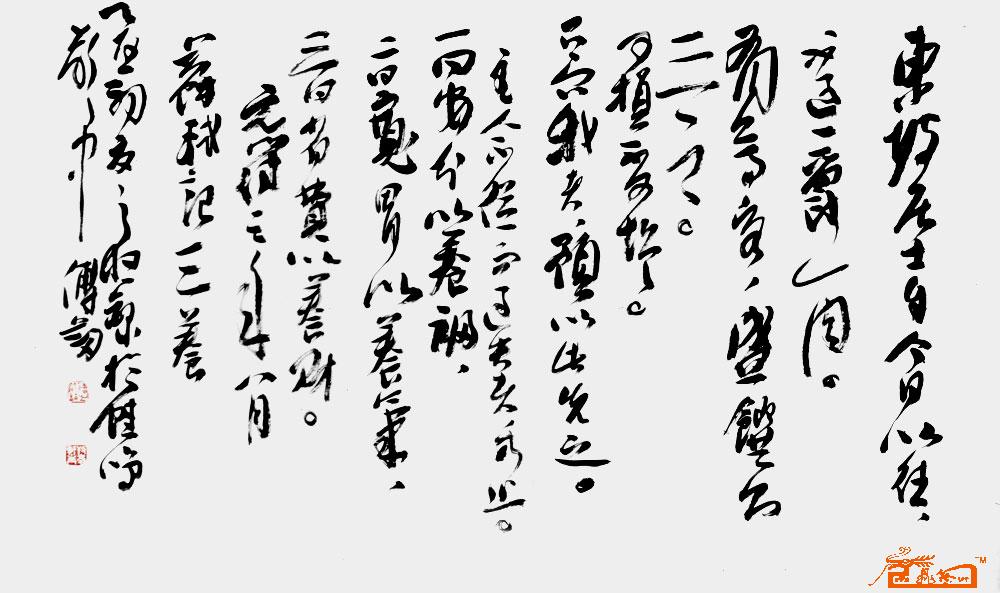 東坡居士自今日以往、
不過一爵一肉。
有尊客、盛饌則
三之。
可損不可增。
召我者、預以此先之。
主人不從而過是者乃止。
一曰安分以養福、
二曰寬胃以養氣、
三曰省費以養財。
元符三年八月
蘇軾記三養
初夏之